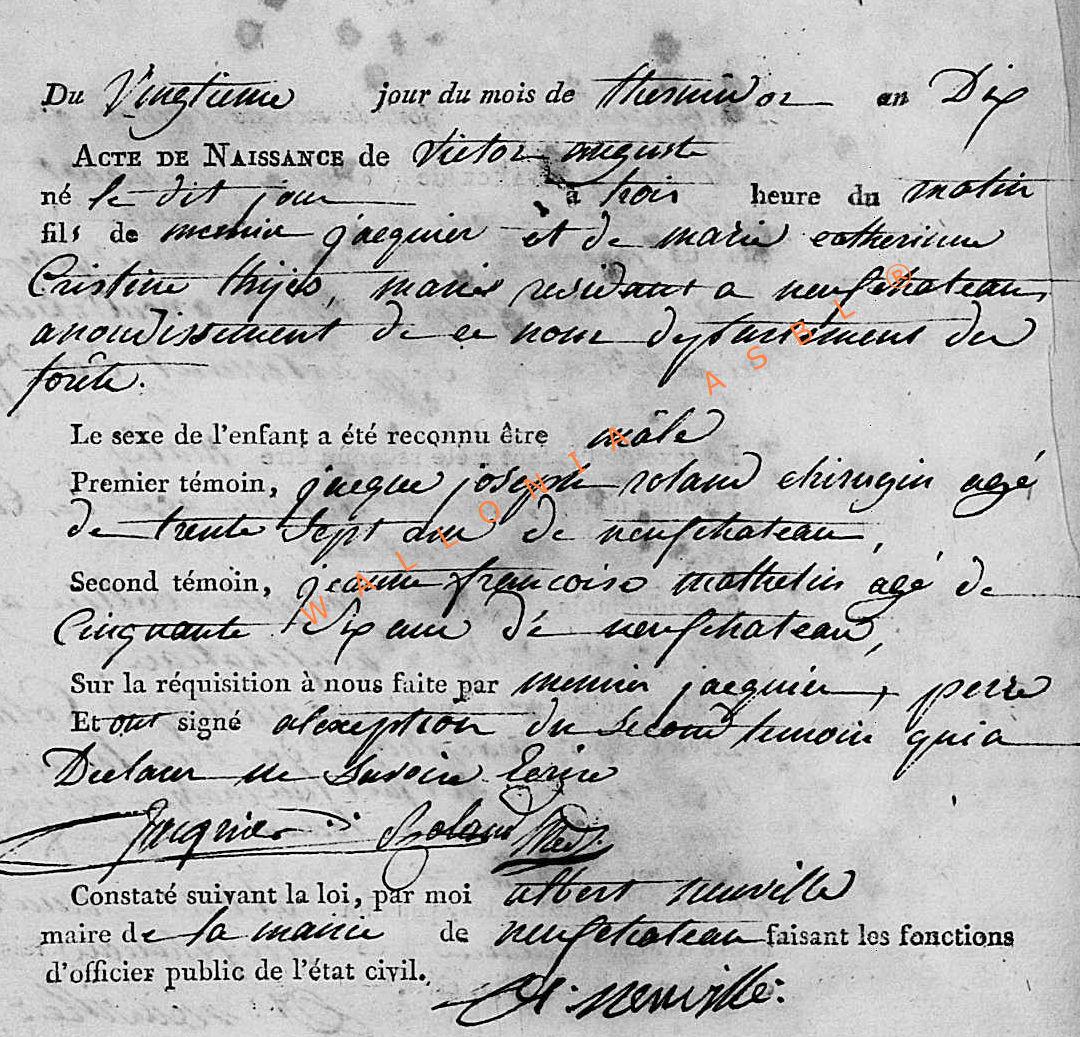 Du Vingtieme jour du mois de thermidor an Dix
ACTE DE NAISSANCE de Victor auguste
né le dit jour à trois heure du matin
fils de jacquier et de marie catherinne
Cristine mariés residant a neufchateau,
arrondissement de ce nom departement des
forêts.
Le sexe de l'enfant a été reconnu être mâle
Premier témoin, jacque joseph roland chirurgin agé
de trente Sept ans de neufchateau,
Second témoin, jeanne francoise mathelin agé de
Cinquante Six ans de neufchateau,
Sur la réquisition à nous faite par jacquier, perre
Et ont signé alexeption du second temoin qui a
Declaré ne savoire Ecrire
Jacquier Roland
Constaté suivant la loi, par moi albert neuville
maire de la mairie de neufchateau faisant les fonctions
d'officier public de l'état civil.
A: Neuville:
WALLONIA ASBL ®